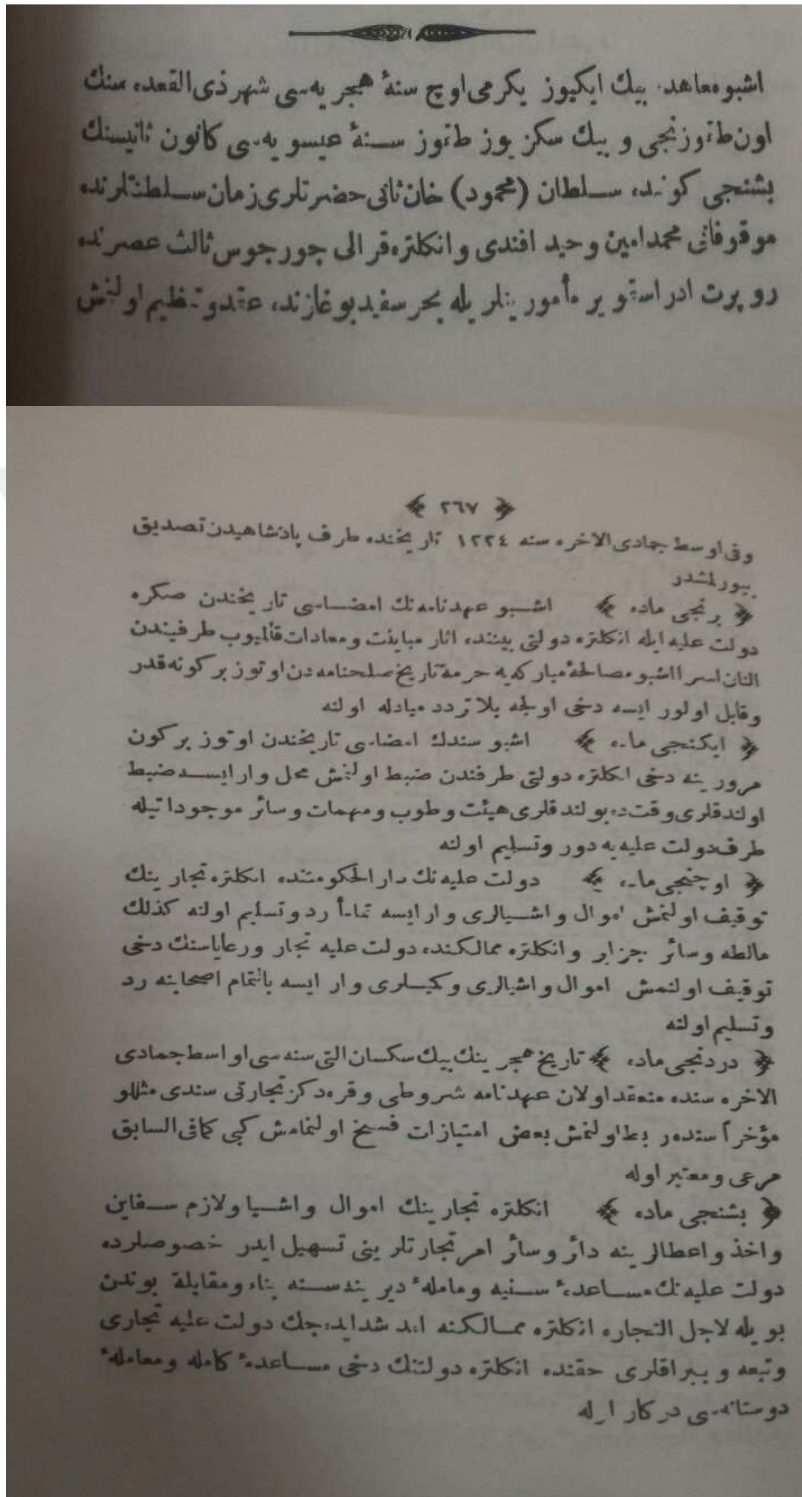 اشبو معاهده بيك ايكيوز يكرمی اوچ سنۀ هجريه‌سی شهر ذی‌القعده‌سنك
اون طقوزنجی و بيك سكز يوز طقوز سنۀ عيسويه‌سی كانون ثانيسنك
بشنجی كوننده سلطان (محمود) خان ثانی حضرتلری زمان سلطنتلرنده
موقوفاتی محمد امين وحيد افندی و انكلتره قرالی جورجوس ثالث عصرنده
روبرت ادر استويير مأموريتلريله بحر سفيد بوغازنده عقد و تنظيم اولنمش
﴿ ٢٦٧ ﴾
وفی اوسط جمادی الاخره سنه ١٢٢٤ تاريخنده طرف پادشاهيدن تصديق
بيورلمشدر
﴿ برنجی ماده ﴾ اشبو عهدنامه‌نك امضاسی تاريخندن صكره
دولت عليه ايله انكلتره دولتی بيننده اثار مباينت و معادات قالميوب طرفيندن
النان اسرا اشبو مصالحۀ مباركه‌يه حرمة تاريخ صلحنامه‌دن اوتوز بر كونه قدر
وقابل اولور ايسه دخی اولجه بلا تردد مبادله اولنه
﴿ ايكنجی ماده ﴾ اشبو سندك امضاسی تاريخندن اوتوز بر كون
مرورينه دخی انكلتره دولتی طرفندن ضبط اولنمش محل وار ايسه ضبط
اولندقلری وقتده بولندقلری هيئت و طوب و مهمات و سائر موجوداتيله
طرف دولت عليه‌يه دور و تسليم اولنه
﴿ اوچنجی ماده ﴾ دولت عليه‌نك دار الحكومتنده انكلتره تجارينك
توقيف اولنمش اموال و اشيالری وار ايسه تماماً رد و تسليم اولنه كذلك
مالطه و سائر جزاير و انكلتره ممالكنده دولت عليه تجار و رعاياسنك دخی
توقيف اولنمش اموال و اشيالری و كميلری وار ايسه بالتمام اصحابنه رد
و تسليم اولنه
﴿ دردنجی ماده ﴾ تاريخ هجرينك بيك سكسان التی سنه‌سی اواسط جمادی
الاخره سنده منعقد اولان عهدنامه شروطی و قره‌دكز تجارتی سندی مثللو
مؤخراً سنده ربط اولنمش بعض امتيازات فسخ اولنمامش كبی كمافی السابق
مرعی و معتبر اوله
﴿ بشنجی ماده ﴾ انكلتره تجارينك اموال و اشيا و لازم سفاين
و اخذ و اعطالرينه دائر و سائر امر تجارتلرينی تسهيل ايدر خصوصلرده
دولت عليه‌نك مساعدۀ سنيه و معاملۀ ديرينه‌سنه بناء و مقابلة بوندن
بويله لاجل التجاره انكلتره ممالكنه امد شد ايده‌جك دولت عليه تجاری
و تبعه و بيراقلری حقنده انكلتره دولتنك دخی مساعدۀ كامله و معاملۀ
دوستانه‌سی دركار اوله